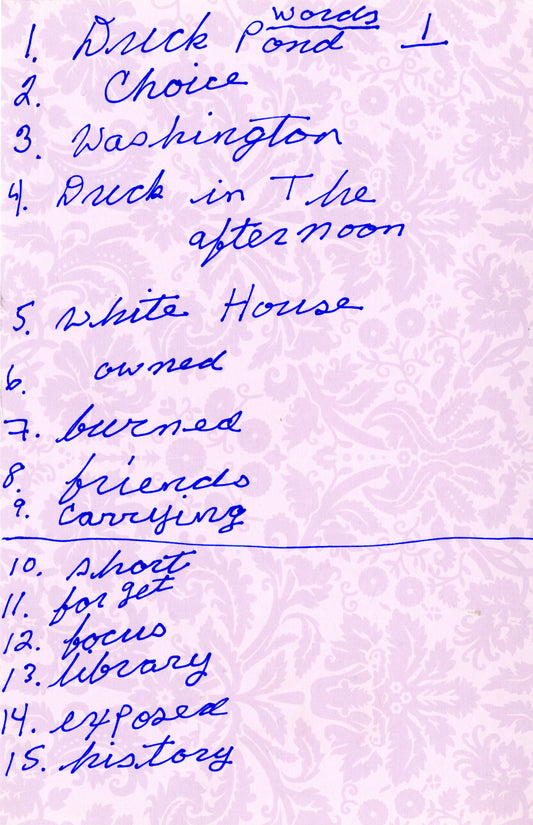 Words
1. Duck Pond 1
2. Choice
3. Washington
4. Duck in The
afternoon
5. White House
6. owned
7. burned
8. friends
9. Carrying
10. short
11. forget
12. focus
13. library
14. exposed
15. history